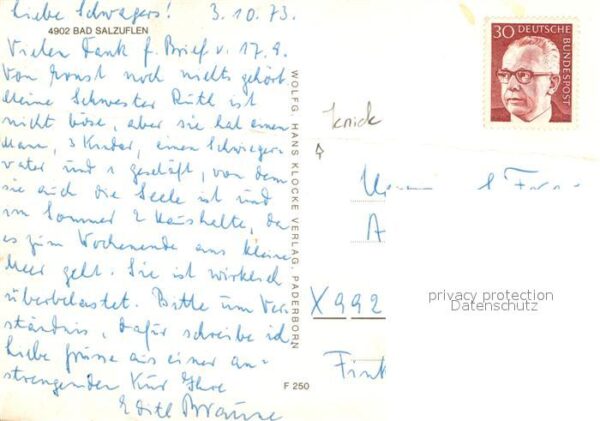 Liebe Schwagers! 3.10.73.
4902 BAD SALZUFLEN
Vielen Dank f. Brief v. 17.9.
Von Ernst noch nichts gehört
Meine Schwester Ruth ist
nicht böse, aber sie hat einen
Mann, 3 Kinder, einen Schwieger-
vater und 1 Geschäft, von dem
sie auch die Seele ist und
im Sommer 2 Haushalte, da
es zum Wochenende ans kleine
Meer geht. Sie ist wirklich
überbelastet. Bitte um Ver-
ständnis, dafür schreibe ich
Liebe Grüsse aus einer an-
strengenden Kur Ihre
Edith Braune
WOLFG. HANS KLOCKE VERLAG, PADERBORN
F 250
30 DEUTSCHE BUNDESPOST
Knick
A
X992
privacy protection
Datenschutz